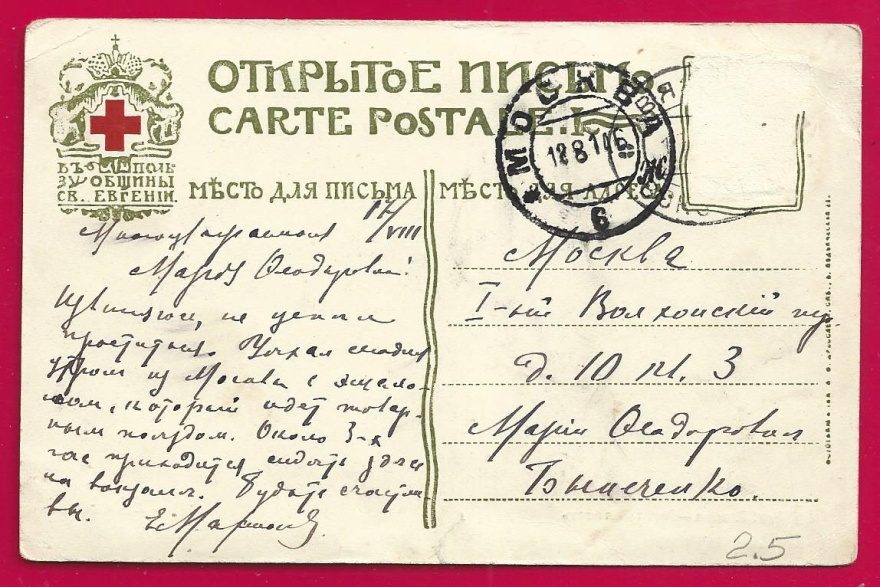 ОТКРЫТОЕ ПИСЬМО
CARTE POSTALE.
ВЪ ПОЛЬ
ЗУ ОБЩИНЫ
СВ. ЕВГЕНІИ.
МѢСТО ДЛЯ ПИСЬМА
МѢСТО ДЛЯ АДРЕСА
МОСКВА
18 8 1
6
17/VIII
Многоуважаемая
Марія Ѳеодоровна!
Извиняюсь, не успѣлъ
проститься. Уѣхал сегодня
утром из Москвы с эшело-
ном, который идет товар-
ным поѣздом. Около 3-х
час приходится сидѣть здѣсь
на вокзалѣ. Будьте счастли-
вы.
Москва
I-ый Волхонскій пер.
д. 10 кв. 3
Марии Ѳеодоровнѣ
2.5